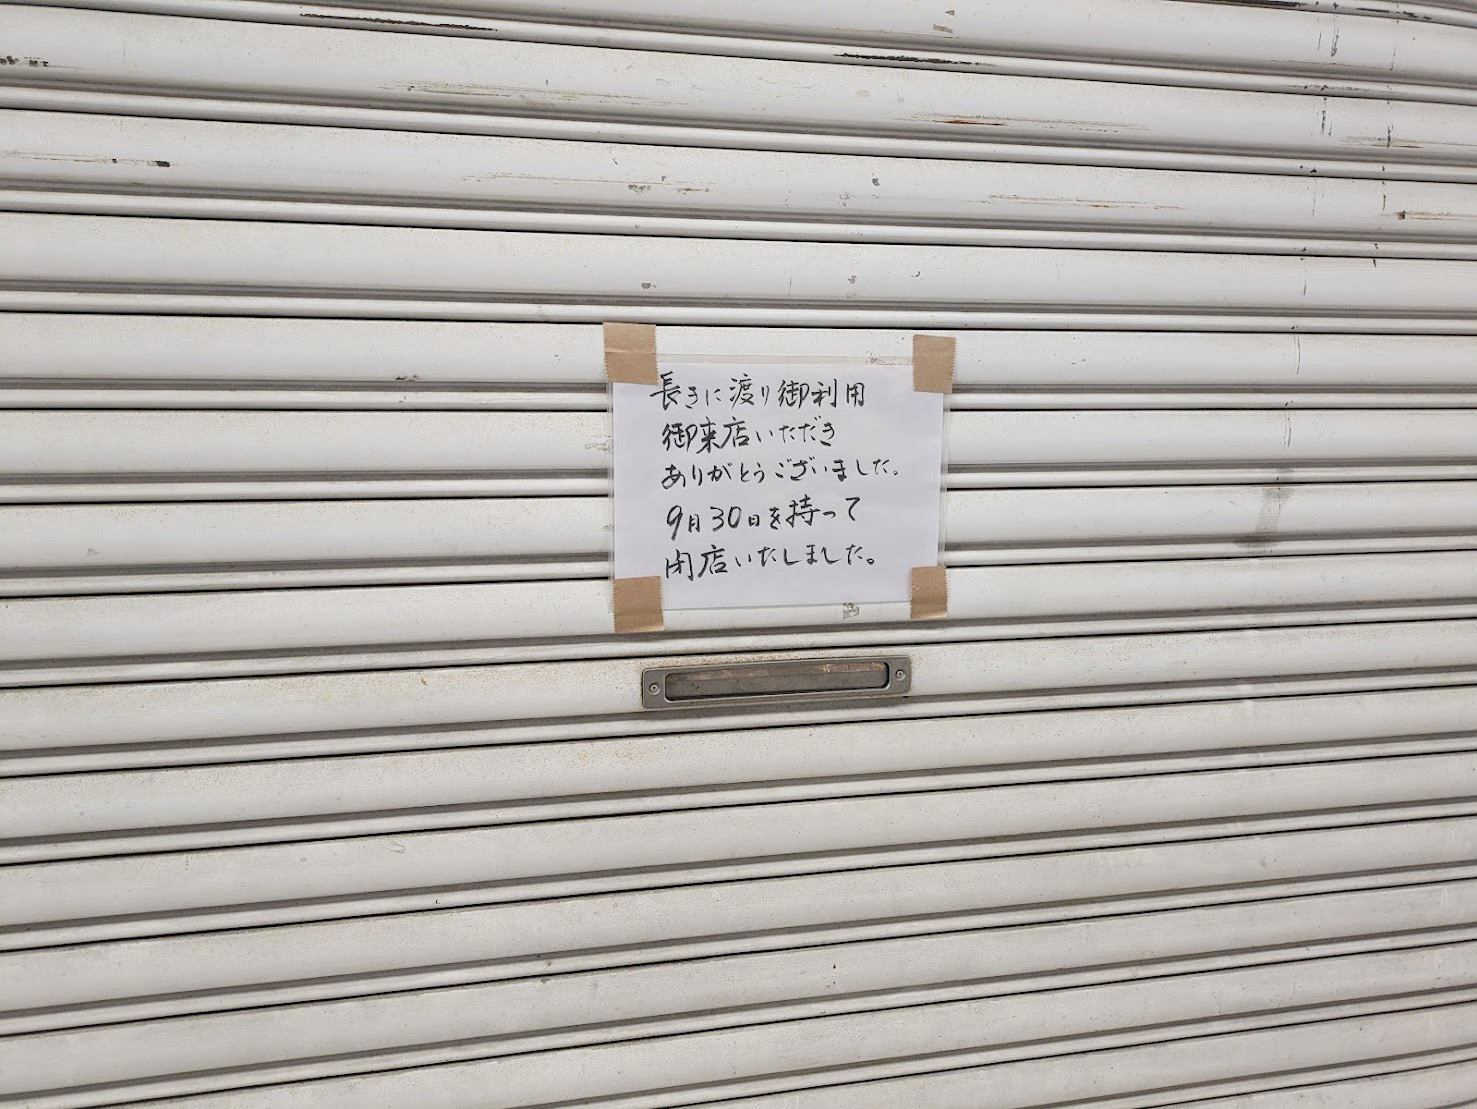 長きに渡り御利用
御来店いただき
ありがとうございました。
9月30日を持って
閉店いたしました。